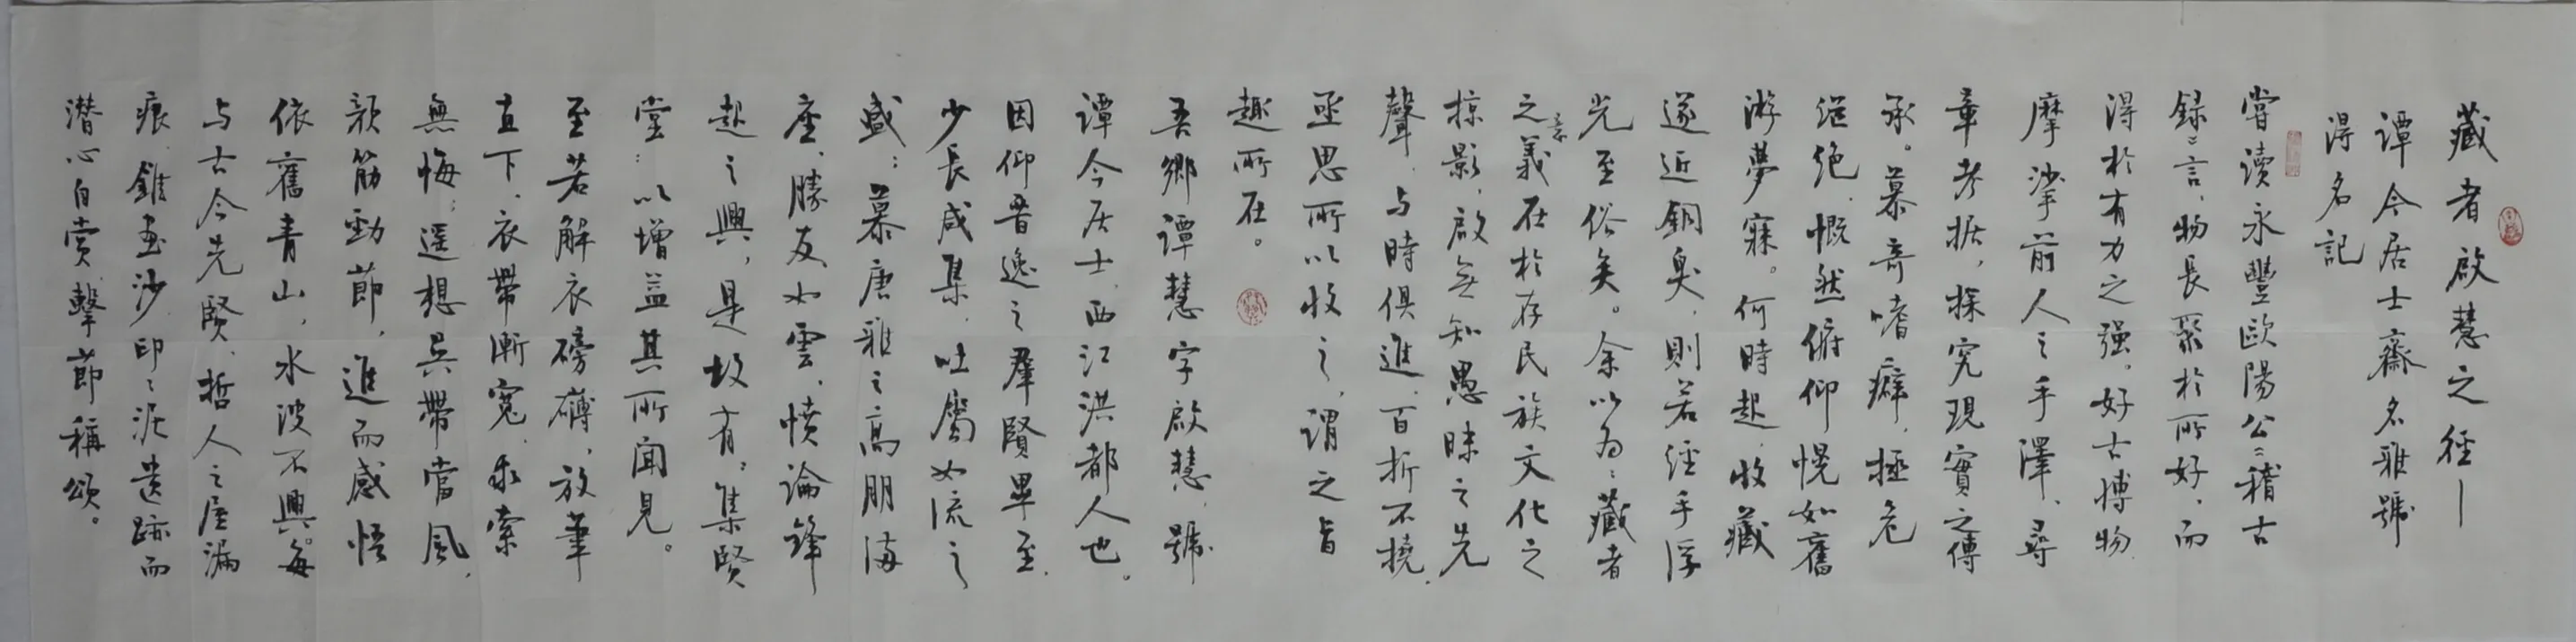 藏者啟慧之徑—
譚今居士齋名雅號
得名記
嘗讀永豐歐陽公：稽古
録：言，物長聚於所好，而
得於有力之强。好古博物
摩挲前人之手澤、尋
章考据，探究現實之傳
承。慕奇嗜癖，拯危
继绝，慨然俯仰，恍如舊
游夢寐。何時起，收藏
遂近銅臭，則若經手浮
光至俗矣。余以為：藏者
之意義在於存民族文化之
掠影，啟無知愚昧之先
聲，与時俱進，百折不撓，
亟思所以收之，謂之旨
趣所在。
吾鄉譚慧字啟慧，號
譚今居士，西江洪都人也。
因仰晋逸之羣賢畢至，
少長咸集，吐屬如流之
盛；慕唐雅之高朋滿
座，勝友如雲，憤論鋒
起之興，是故有：集賢
堂：以增益其所聞見。
至若解衣磅礴，放筆
直下，衣帶漸寬，求索
無悔；遥想吴帶當風，
颜筋勁節，進而感悟
依舊青山，水波不興。每
与古今先賢、哲人之屋漏
痕、錐畫沙、印：泥遗跡而
潜心自赏、擊節稱頌。